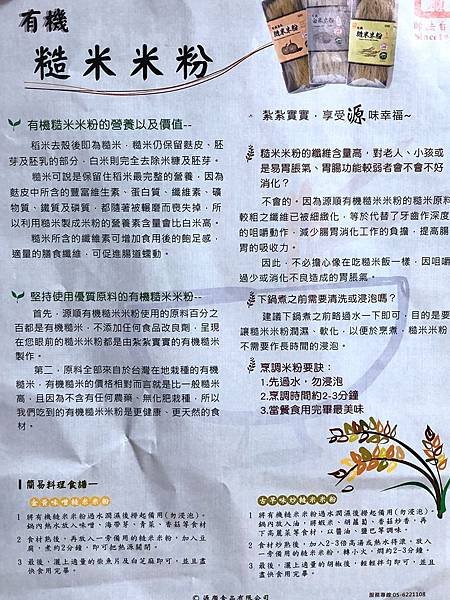 有機
糙米米粉
有機糙米米粉的營養以及價值--
稻米去殼後即為糙米，糙米仍保留麩皮、胚
芽及胚乳的部分，白米則完全去除米糠及胚芽。
糙米可說是保留住稻米最完整的營養，因為
麩皮中所含的豐富維生素、蛋白質、纖維素、礦
物質、鐵質及磷質，都隨著被輾磨而喪失掉，所
以利用糙米製成米粉的營養素含量會比白米高。
糙米所含的纖維素可增加食用後的飽足感，
適量的膳食纖維，可促進腸道蠕動。
堅持使用優質原料的有機糙米米粉--
首先，源順有機糙米米粉使用的原料百分之
百都是有機糙米，不添加任何食品改良劑，呈現
在您眼前的糙米米粉都是由紮紮實實的有機糙米
製作。
第二，原料全部來自於台灣在地栽種的有機
糙米，有機糙米的價格相對而言就是比一般糙米
高，且因為不含有任何農藥、無化肥栽種，所以
我們吃到的有機糙米米粉是更健康、更天然的食
材。
紮紮實實，享受源味幸福~
糙米米粉的纖維含量高，對老人、小孩或
是易胃脹氣、胃腸功能較弱者會不會不好
消化？
不會的，因為源順有機糙米米粉的糙米原料
較粗之纖維已被細緻化，等於代替了牙齒作深度
的咀嚼動作，減少腸胃消化工作的負擔，提高腸
胃的吸收力。
因此，不必擔心像在吃糙米飯一樣，因咀嚼
過少或消化不良造成的胃脹氣。
下鍋煮之前需要清洗或浸泡嗎？
建議下鍋煮之前略過水一下即可，目的是要
讓糙米米粉濕潤、軟化，以便於烹煮，糙米米粉
不需要作長時間的浸泡。
烹調米粉要訣：
1.先過水，勿浸泡
2.烹調時間約2-3分鐘
3.當餐食用完畢最美味
簡易料理食譜—
1 將有機糙米米粉過水潤濕後撈起備用(勿浸泡)。
鍋內熱水放入味噌，海帶芽、青菜、香菇等食材
2 食材熟後，再放入一旁備用的糙米米粉，加入豆
腐，煮約2分鐘，即可把熱源關閉。
3 最後，灑上適量的柴魚片及白芝麻即可，並且盡
快食用完畢。
古早味炒糙米米粉
1 將有機糙米米粉過水潤濕後撈起備用(勿浸泡)。
鍋內放入油，將蝦米、胡蘿蔔、香菇炒香，再
下高麗菜等食材，以醬油、鹽巴等調味。
2 食材炒熟後，加入2-3倍高湯或熱水拌滾，放入
一旁備用的糙米米粉，轉小火，燜約2-3分鐘。
3 最後，灑上適量的胡椒後，輕輕拌勻即可，並且
盡快食用完畢。
© 源順食品有限公司
服務專線:05-6221108